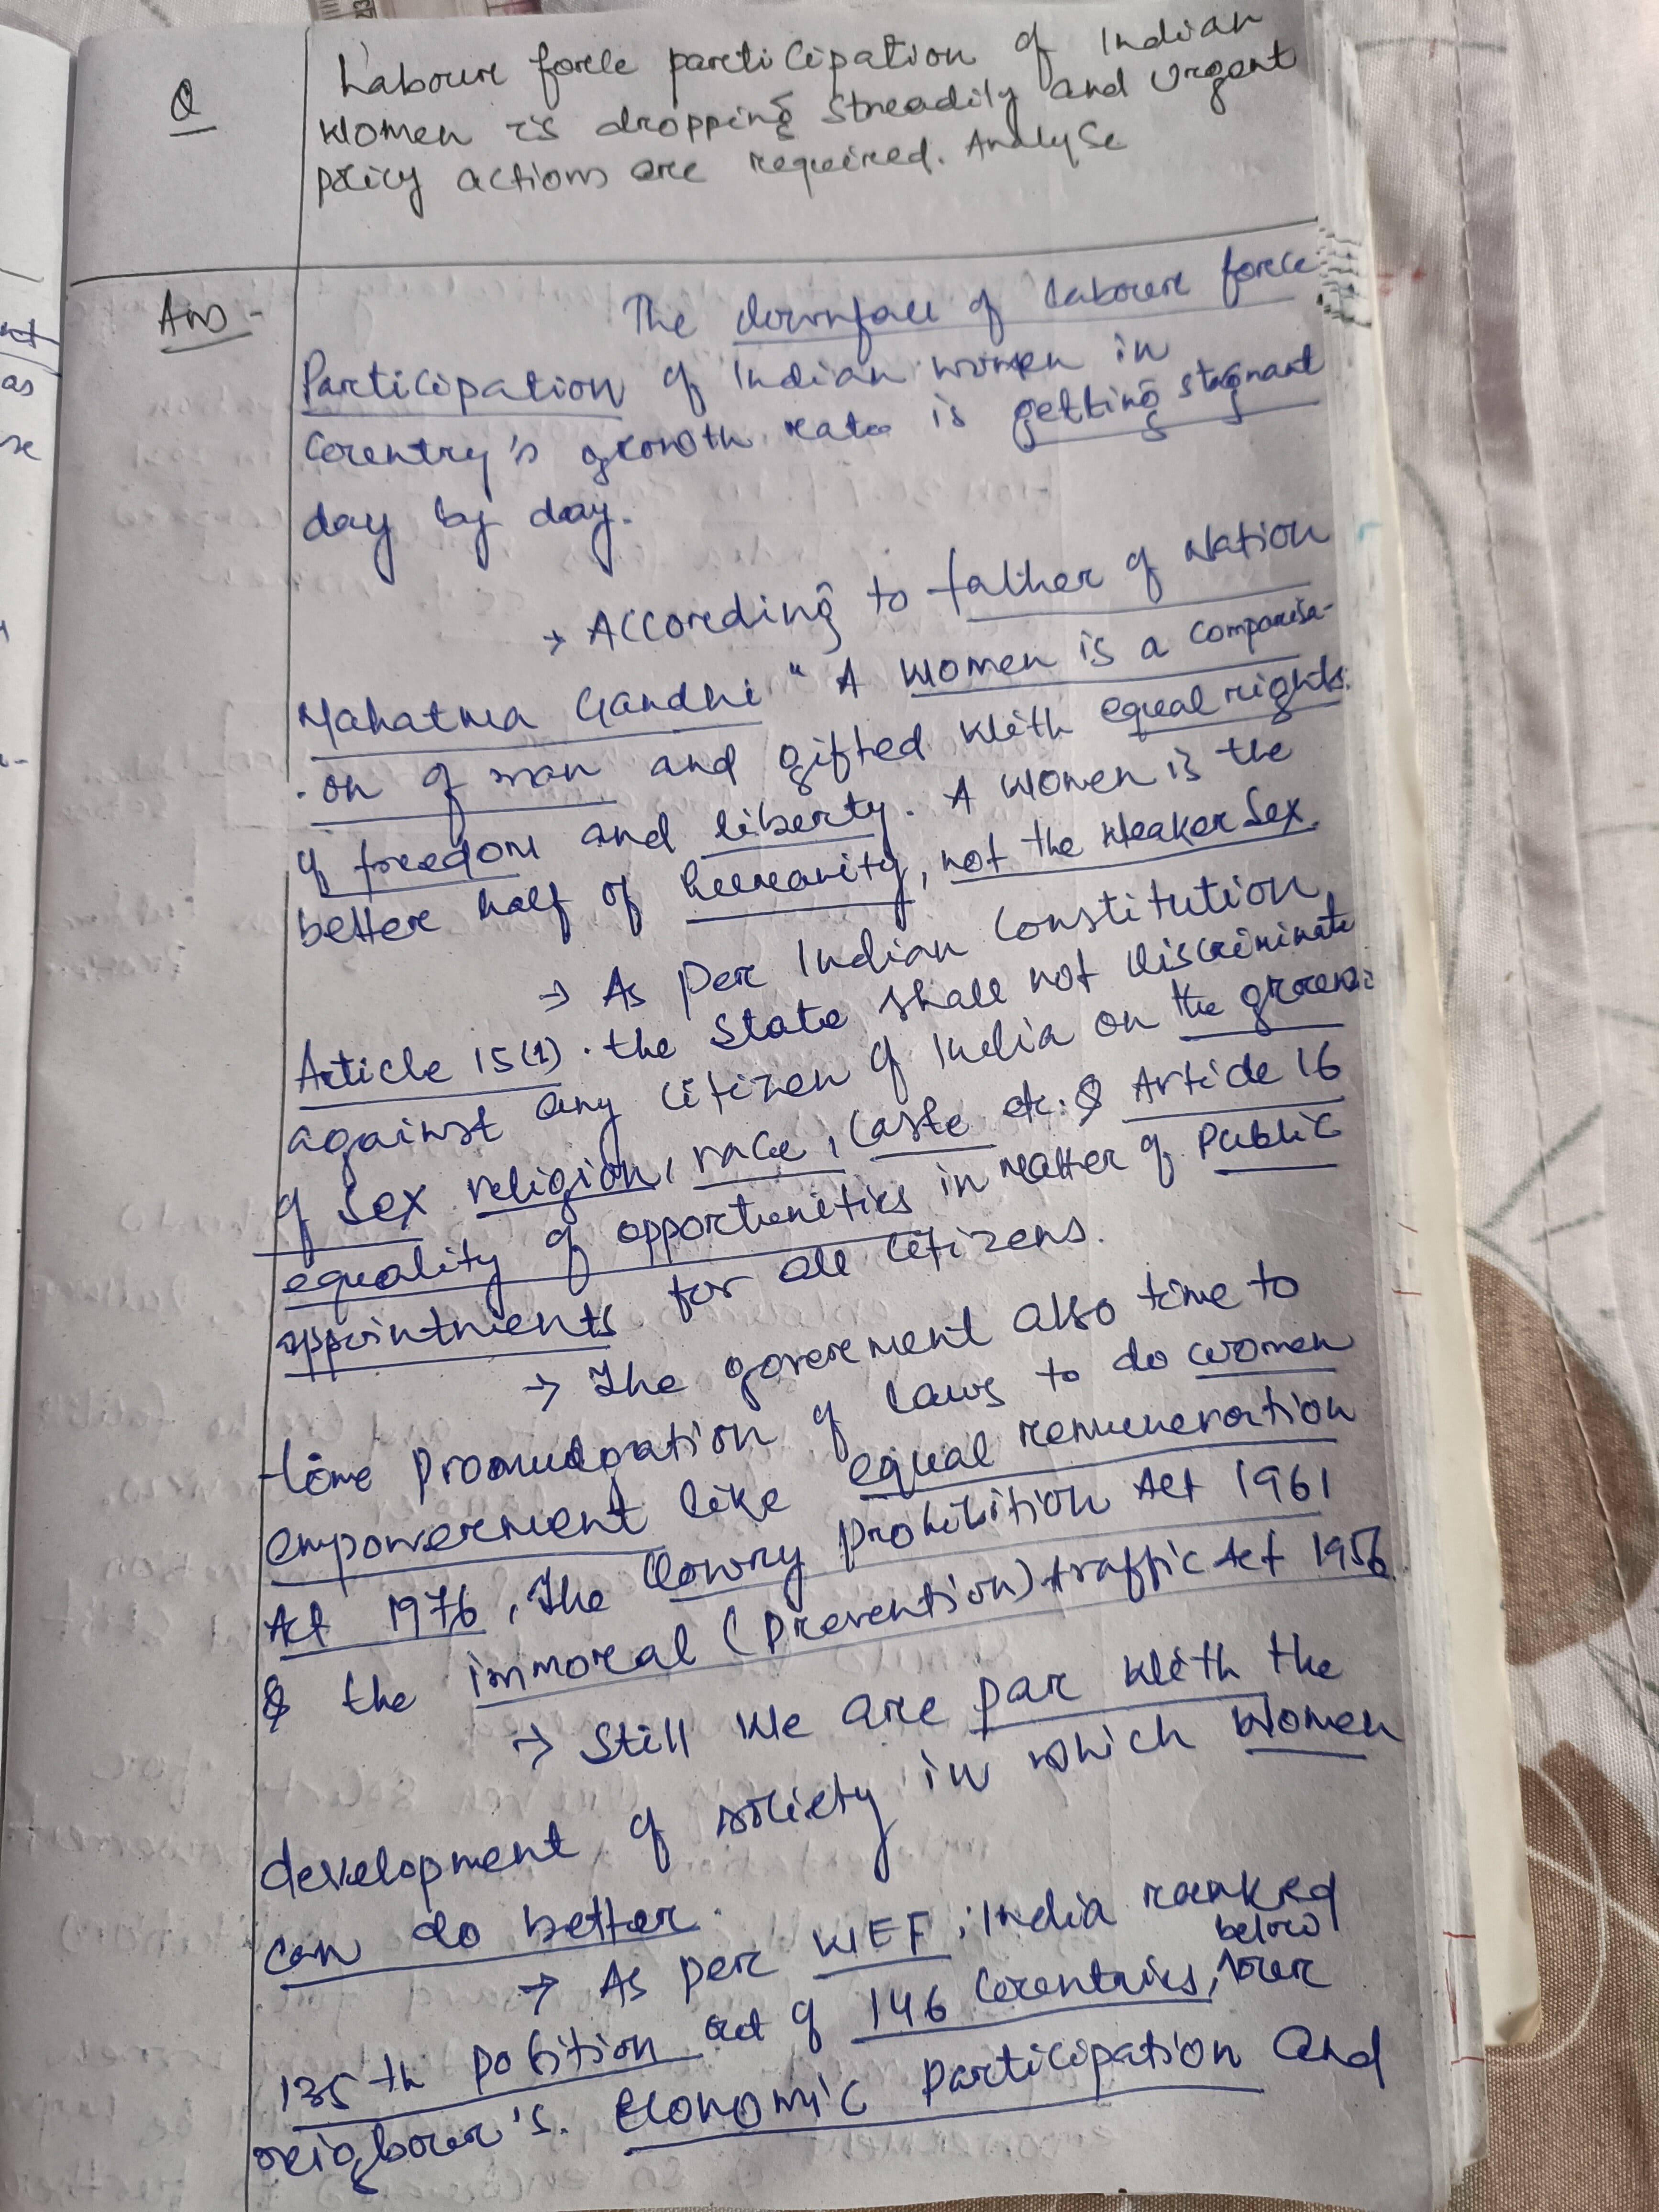 Q
Labour force participation of Indian
Women is dropping streadily and Urgent
policy actions are required. Analyse
Ans -
The downfall of Labour force
Participation of Indian women in
Country's growth rate is getting stagnant
day by day.
→ According to father of Nation
Mahatma Gandhi " A women is a comparisa-
-on of man and gifted with equal rights
of freedom and liberty. A women is the
better half of humanity, not the weaker sex.
→ As per Indian Constitution,
Article 15(1). the State shall not discriminate
against any citizen of India on the ground
of sex religion, race, caste etc. & Article 16
equality of opportunities in matter of public
appointments for all citizens.
→ The goverement also time to
time promudgation of laws to do women
empowerment like equal remuneration
Act 1976, The Dowry prohibition Act 1961
& the immoral (prevention) traffic Act 1956
→ Still we are par with the
development of society in which women
can do better.
→ As per WEF, India ranked
135th position out of 146 countries, below
neigbour's. Economic participation and